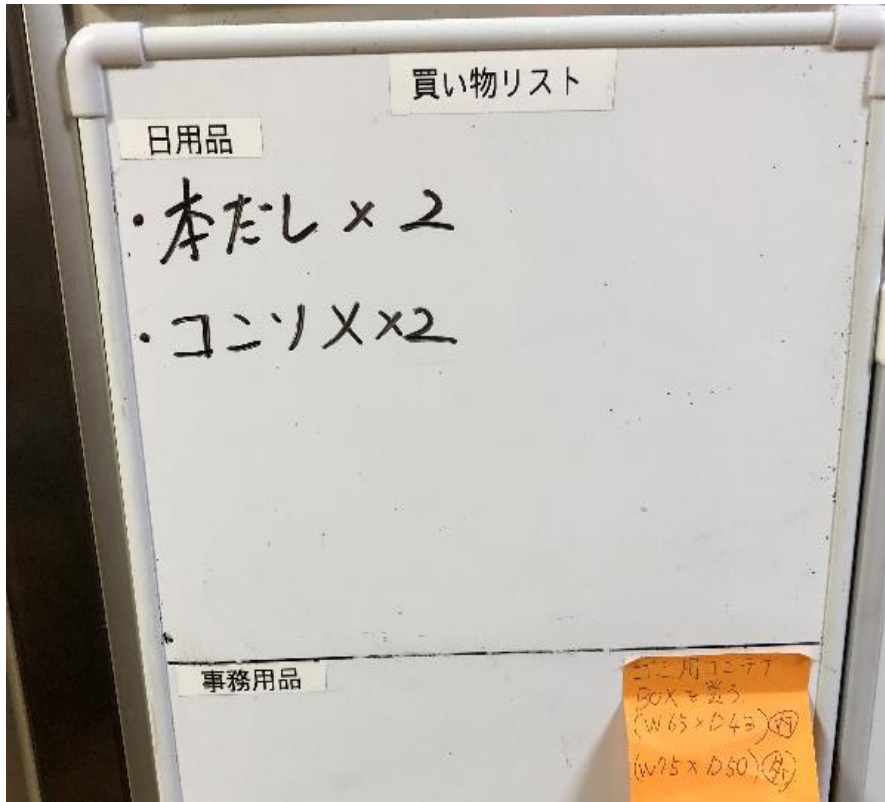 買い物リスト
日用品
・本だし×2
・コンソメ×2
事務用品
ゴミ用コンテナ
BOXを買う
(W65×D43)内
(W75×D50)